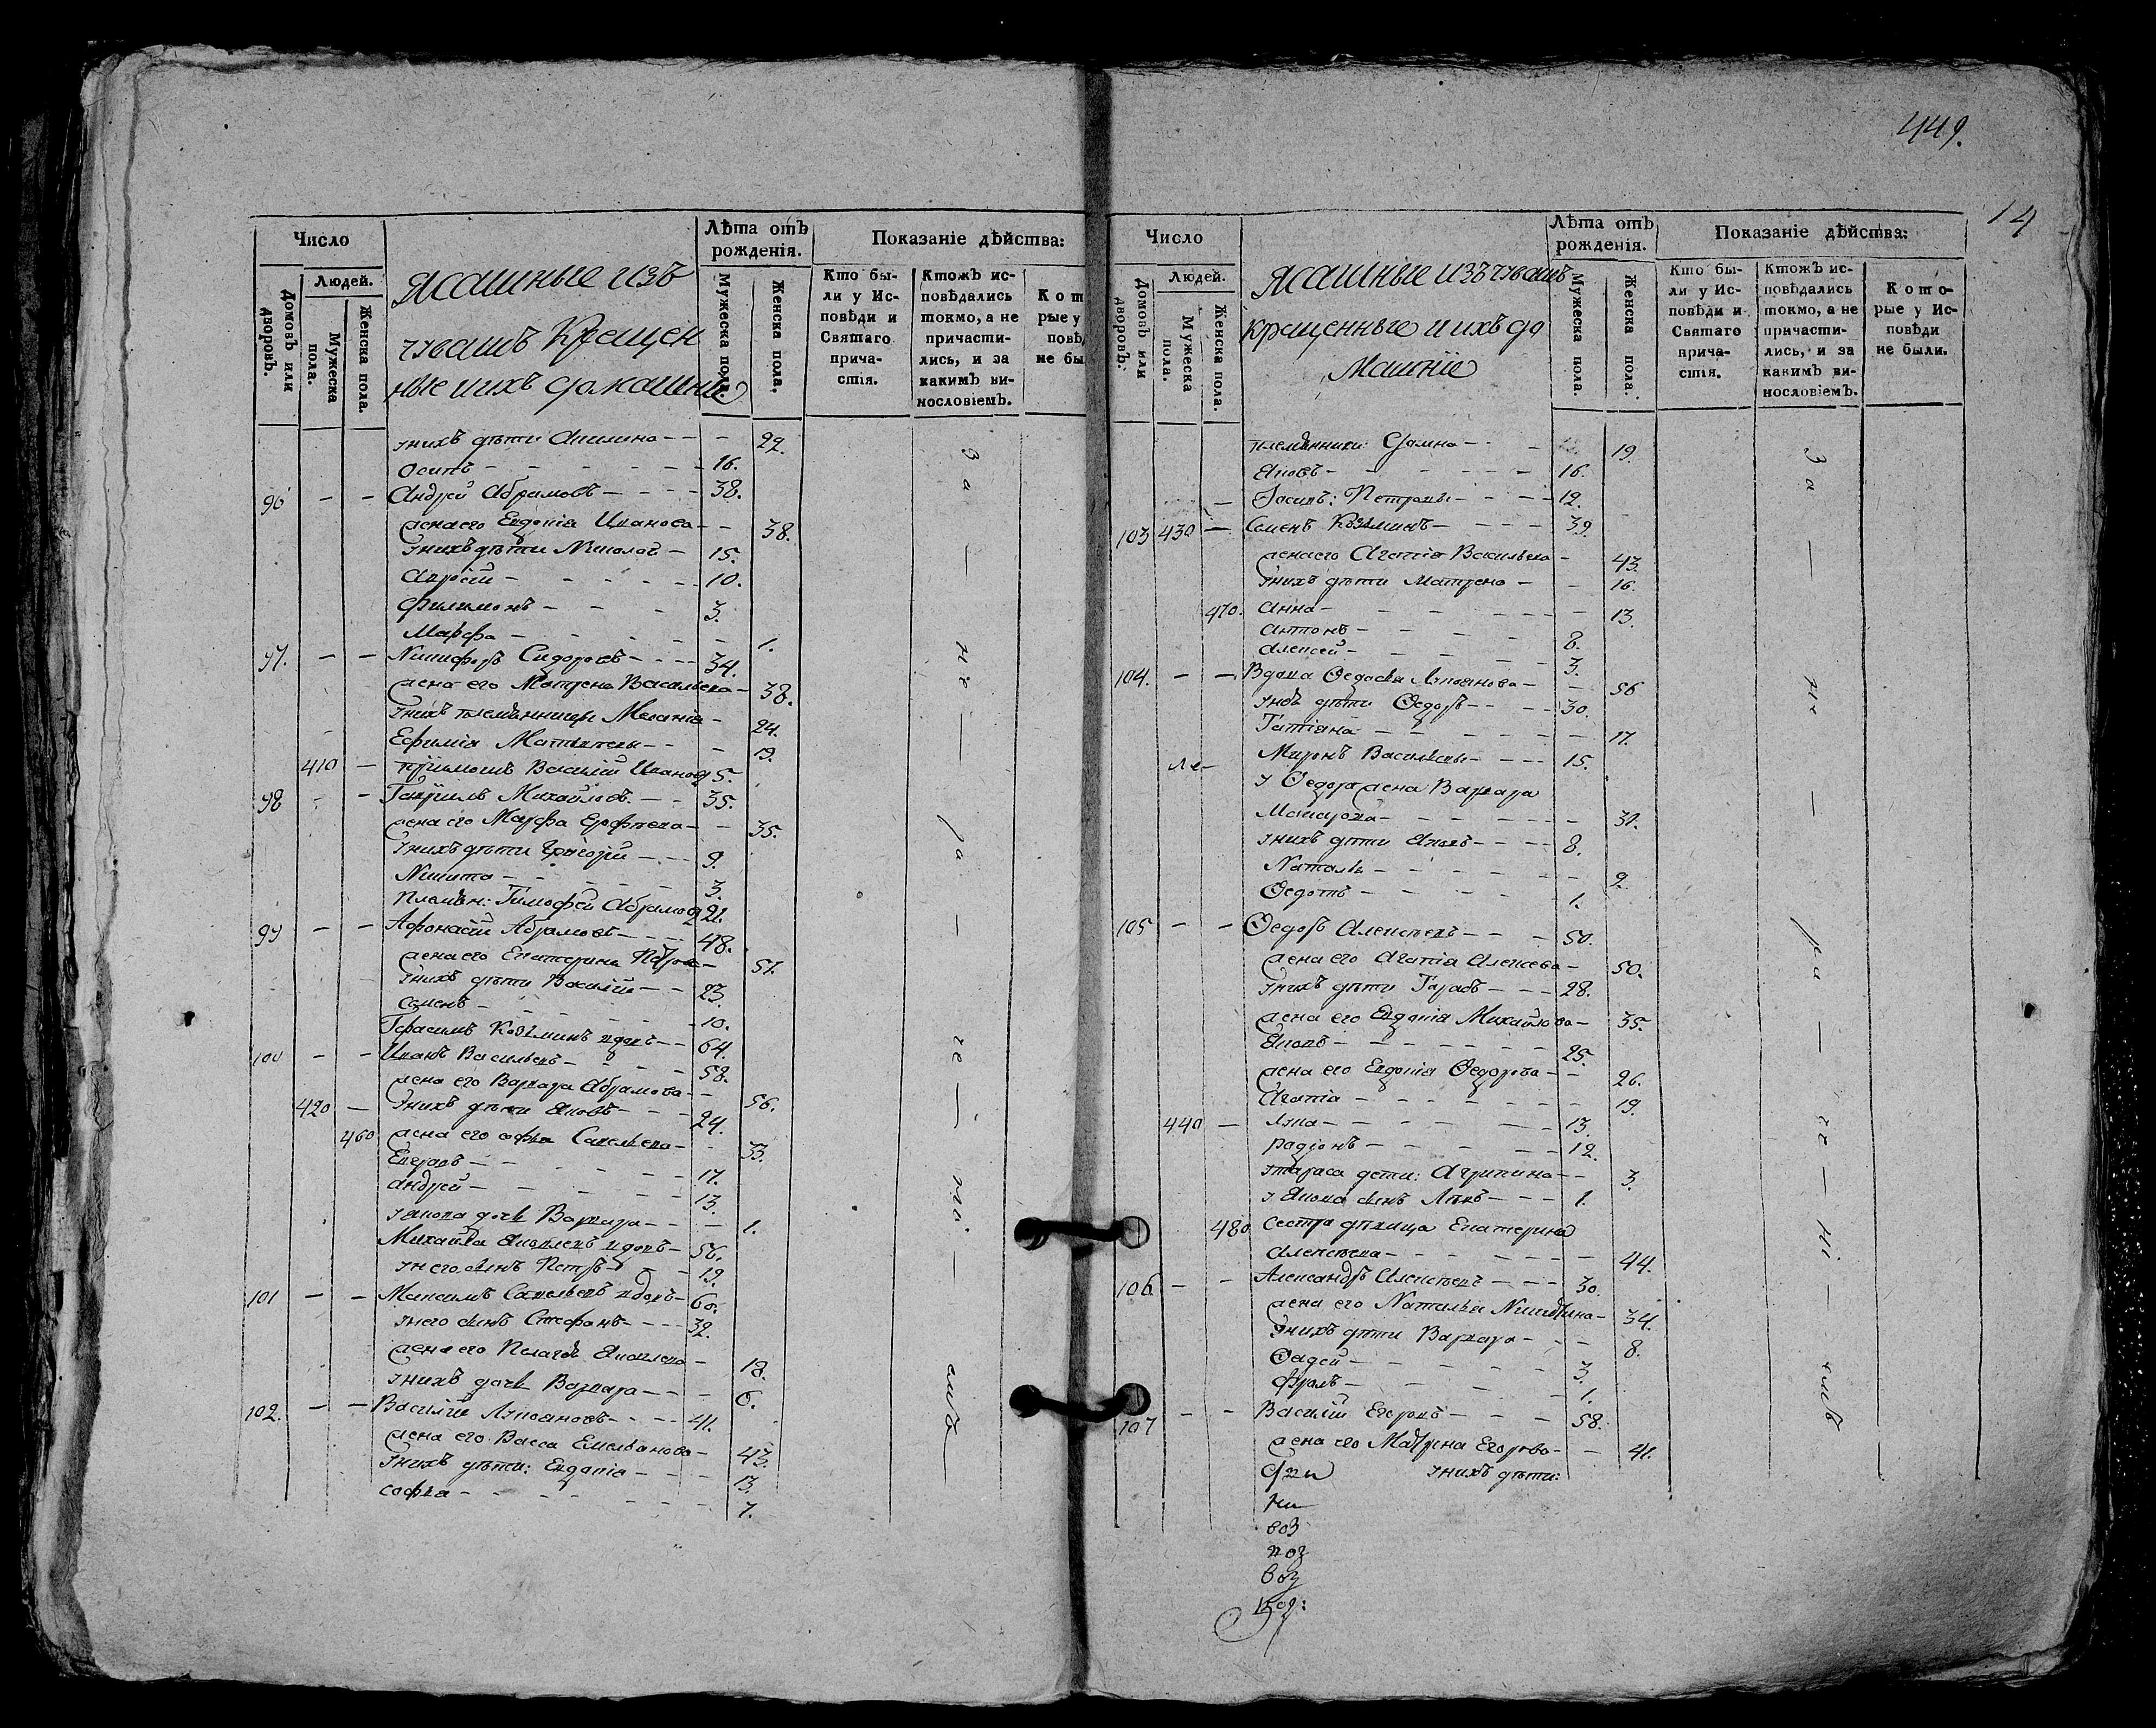 449.
14
Число
Людей.
Домовъ или дворовъ.
Мужеска пола.
Женска пола.
Ясашные изъ
чувашъ Крещен
ные и ихъ домашние
Лѣта отъ рожденія.
Мужеска пола.
Женска пола.
Показаніе дѣйства:
Кто бы-
ли у Ис-
повѣди и
Святаго
прича-
стія.
Ктожъ ис-
повѣдались
токмо, а не
причасти-
лись, и за
какимъ ви-
нословіемъ.
Кот
рые у
повѣ
не бы
унихъ дѣти Акилина - - 22.
Осипъ - 16.
96 - - Андрей Абрамовъ - 38.
жена его Евдокія Иванова - 38.
унихъ дѣти Николай - 15.
Авдѣй - 10.
Филимонъ - 3.
Марфа - 1.
97. - - Никифоръ Сидоровъ - 34.
жена его Матрена Васильева - 38.
унихъ племянницы Меланія - 24.
Ефимія Матвѣевы - 19.
410 - пріемышъ Василій Иванов 5.
98 - - Гаврилъ Михайловъ - 35.
жена его Марфа Ерофеева - 35.
унихъ дѣти Григорій - 9.
Никита - 3.
Племян: Тимофей Абрамов 21.
99 - - Афонасій Абрамовъ - 48.
жена его Екатерина Петрова - 51.
унихъ дѣти Василій - 23.
Семенъ - 10.
Герасимъ Козминъ вдовъ - 64.
100 - - Иванъ Васильевъ - 58.
жена его Варвара Абрамова - 56.
420 - унихъ дѣти Яковъ - 24.
460 жена его Софья Савельева - 33.
Егоръ - 17.
Андрей - 13.
у Якова дочь Варвара - 1.
Михайла Яковлевъ вдовъ - 56.
у него сынъ Петръ - 19.
101 - - Максимъ Савельевъ вдовъ - 60.
унего сынъ Стефанъ - 32.
жена его Пелагея Яковлева - 18.
унихъ дочь Варвара - 6.
102. - - Василій Лукояновъ - 41.
жена его Васса Емельянова - 43.
унихъ дѣти: Евдокія - 13.
Софья - 7.
За - не - ра - че - ні - емъ -
Число
Людей.
Домовъ или дворовъ.
Мужеска пола.
Женска пола.
Ясашные изъ чувашъ
крещенные и ихъ до
машніе
Лѣта отъ рожденія.
Мужеска пола.
Женска пола.
Показаніе дѣйства:
Кто бы-
ли у Ис-
повѣди и
Святаго
прича-
стія.
Ктожъ ис-
повѣдались
токмо, а не
причасти-
лись, и за
какимъ ви-
нословіемъ.
Кото-
рые у Ис-
повѣди
не были.
племянники: Домна - 19.
Яковъ - 16.
Петровы - 12.
103 430 - Семенъ Козминъ - 39.
жена его Агафія Васильева - 43.
унихъ дѣти Матрена - 16.
470. Анна - 13.
Антонъ - 8.
Алексей - 3.
104. - - Вдова Федосья Лукоянова - 56
унея дѣти Федоръ - 30.
Татіяна - 17.
Миронъ Васильевы - 15.
у Федора жена Варвара
Макарова - 31.
унихъ дѣти Яковъ - 8.
Наталья - 2.
Федотъ - 1.
105 - - Федоръ Алексѣевъ - 50.
жена его Агафія Алексеева - 50.
унихъ дѣти Тарасъ - 28.
жена его Евдокія Михайлова - 35.
Яковъ - 25.
жена его Евдокія Федорова - 26.
Агафія - 19.
440 - Лука - 13.
Радіонъ - 12.
у Тараса дети: Агрипина - 3.
у Якова сынъ - 1.
480 Сестра дѣвица Екатерина
Алексѣева - 44.
106 - - Александръ Алексѣевъ - 30.
жена его Наталья Никитина - 34.
унихъ дѣти Варвара - 8.
Фадей - 3.
Фролъ - 1.
107 - - Василій Егоровъ - 58.
жена его Матрена Егорова - 41.
унихъ дѣти:
За - не - ра - че - ні - емъ